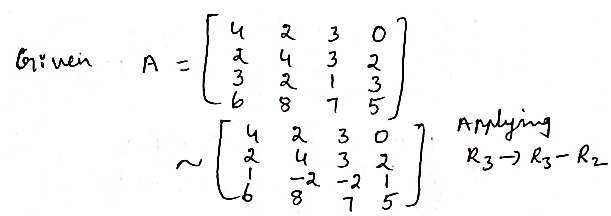 Given A = [ 4 2 3 0
2 4 3 2
3 2 1 3
6 8 7 5 ]
~ [ 4 2 3 0
2 4 3 2
1 -2 -2 1
6 8 7 5 ] Applying
R3 → R3 - R2